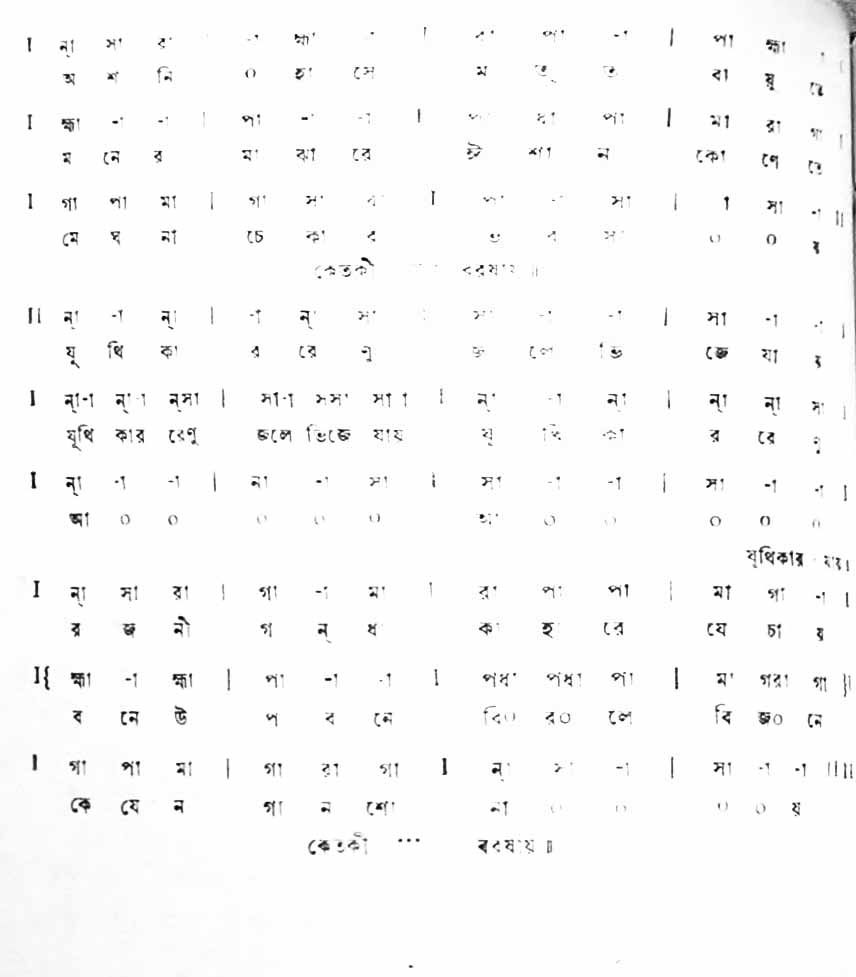 I ন্‌া সা রা | -া হ্মা -া | রা পা -া | পা হ্মা
অ শ নি ০ হা সে ম ত্ ত বা য়ু তে
I হ্মা -া -া | পা -া -া | পা ধা পা | মা রা গা |
ম নে র মা ঝা রে ঈ শা ন কো ণে তে
I গা পা মা | গা সা রা I পা -া সা | া সা -া ||
মে ঘ না চে কা র ভ র সা ০ ০ য়
কেতকী বরষায় ॥
|| ন্‌া -া ন্‌া | -া ন্‌া সা | সা -া -া | সা -া -া |
যূ থি কা র রে ণু জ লে ভি জে যা য়
I ন্‌া-া ন্‌া-া ন্‌সা | সা-া সসা সা-া I ন্‌া -া ন্‌া | ন্‌া ন্‌া সা |
যূথি কার রেণু জলে ভিজে যায় যূ থি কা র রে ণু
I ন্‌া -া -া | না -া সা I সা -া -া | সা -া -া I
আ ০ ০ ০ ০ ০ আ ০ ০ ০ ০ ০
যূথিকার যায়।
I ন্‌া সা রা | গা -া মা | রা পা পা | মা গা -া |
র জ নী গ ন্ ধ কা হা রে যে চা য়
I{ হ্মা -া হ্মা | পা -া -া I পধা পধা পা | মা গরা গা }|
ব নে উ প ব নে বি০ র০ লে বি জ০ নে
I গা পা মা | গা রা গা I ন্‌া সা -া | সা -া -া ||||
কে যে ন গা ন শো না ০ ০ ০ ০ য়
কেতকী ... বরষায় ॥